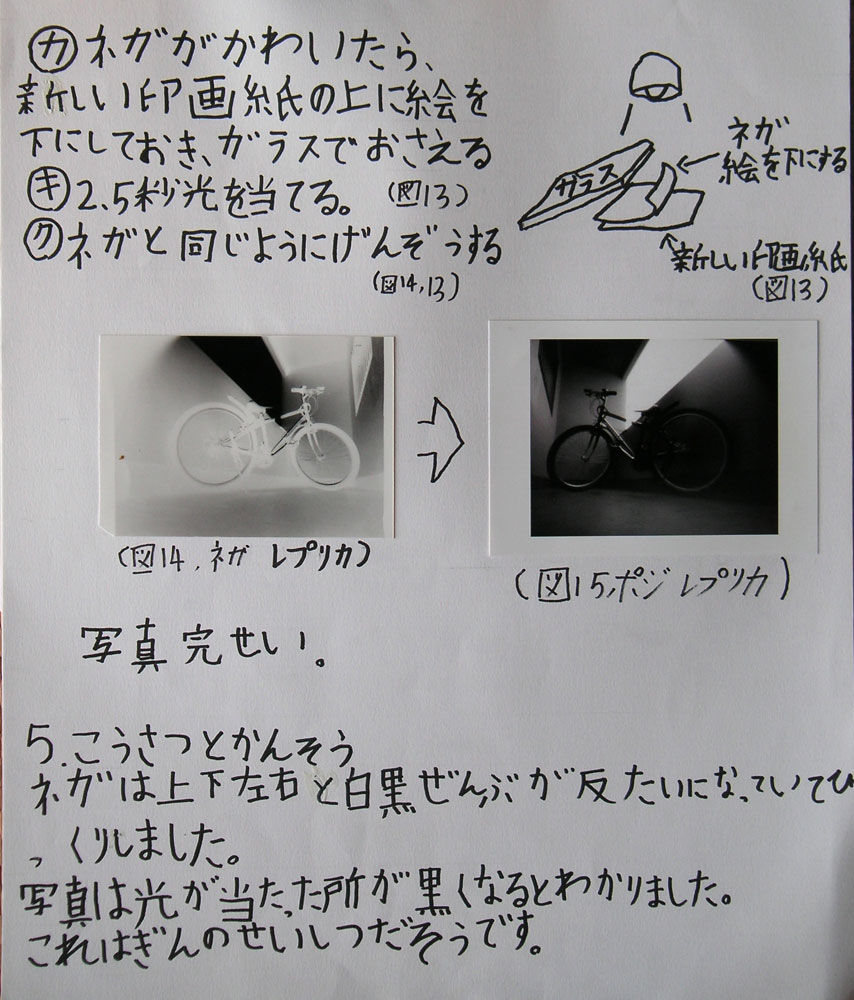 ㋕ネガがかわいたら、
新しい印画紙の上に絵を
下にしておき、ガラスでおさえる
㋖2.5秒光を当てる。(図13)
㋗ネガと同じようにげんぞうする
(図14,13)
ネガ
絵を下にする
ガラス
新しい印画紙
(図13)
(図14,ネガ レプリカ)
(図15,ポジ レプリカ)
写真完せい。
5.こうさつとかんそう
ネガは上下左右と白黒ぜんぶが反たいになっていてび
っくりしました。
写真は光が当たった所が黒くなるとわかりました。
これはぎんのせいしつだそうです。